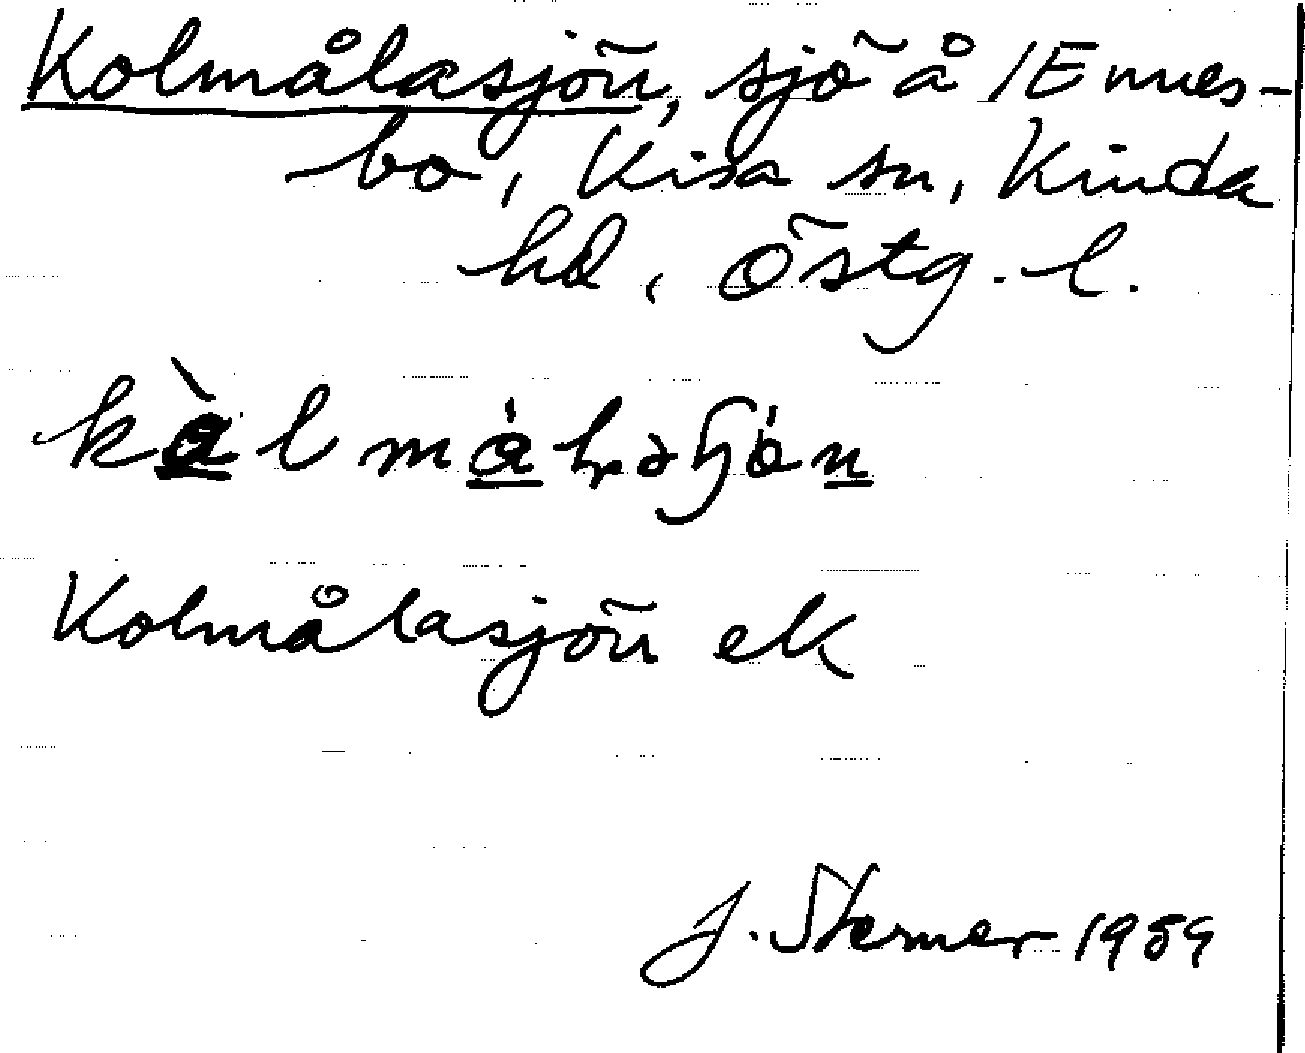 Kolmålasjön, sjö å 1 Ennes-
bo, Kisa sn, Kinda
hd, Östg. l.
Kolmålasjön ek
J. Sterner 1959